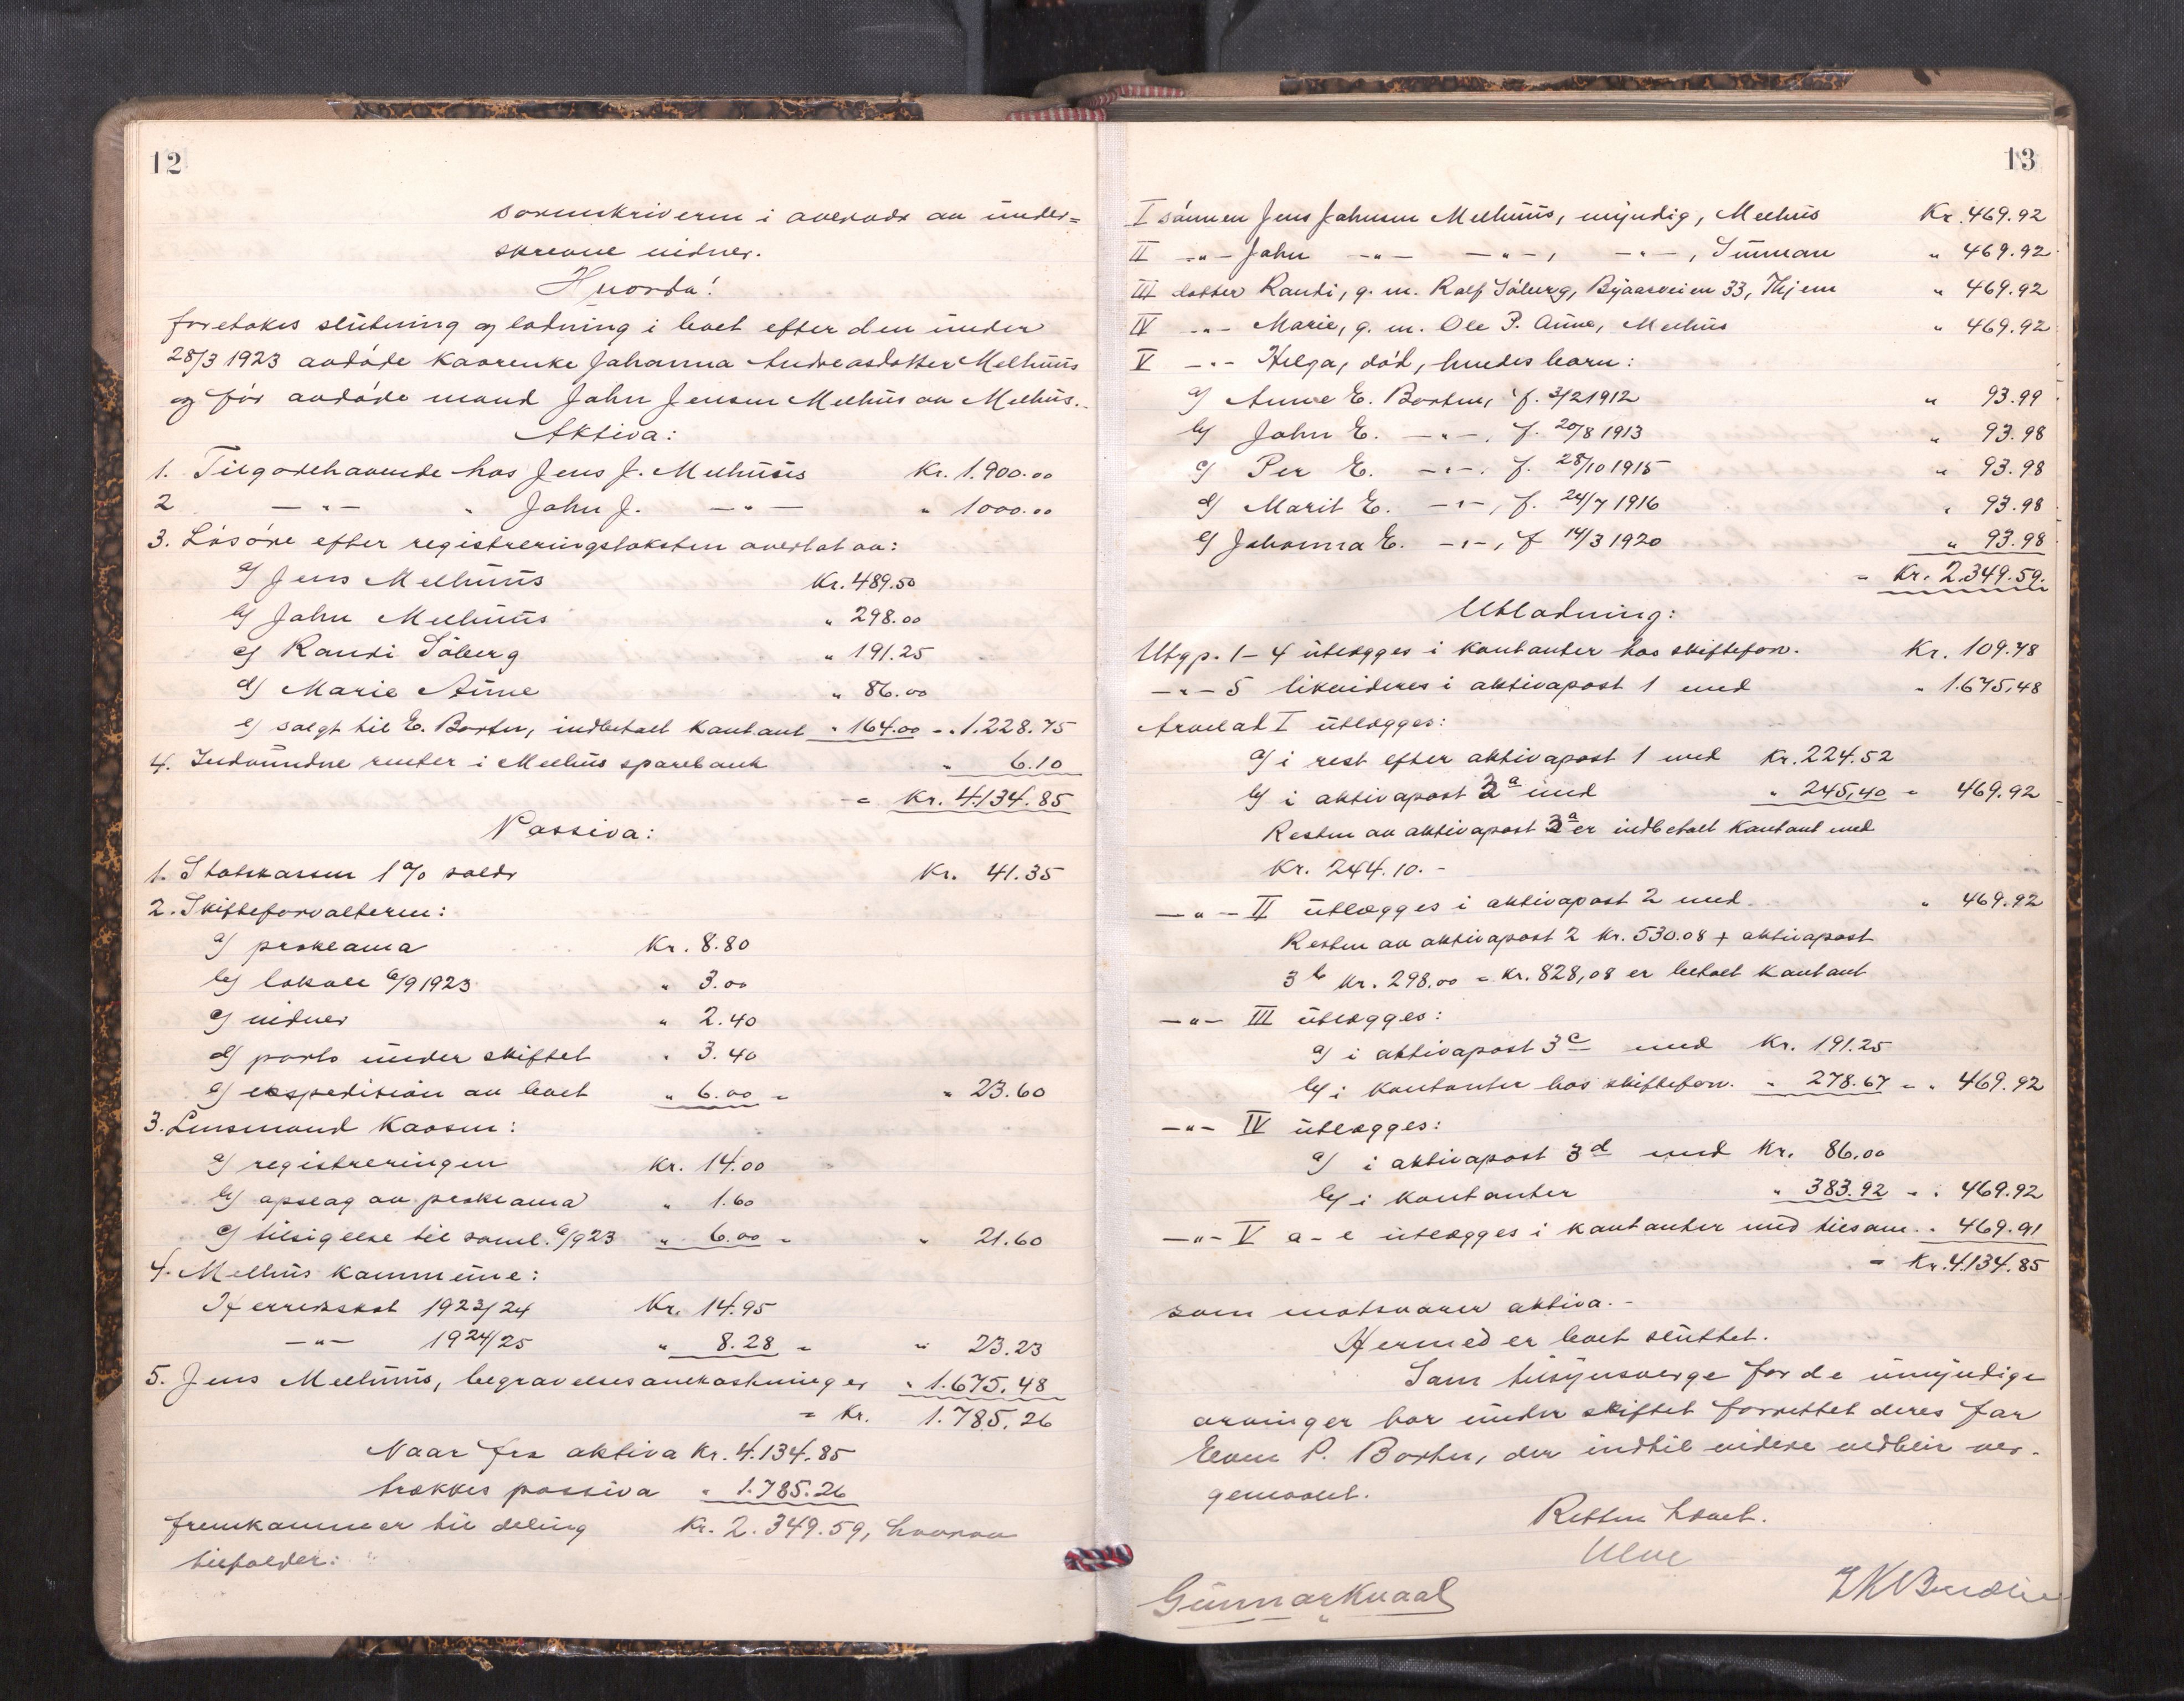 12
sorenskriveren i overvær av under=
skrevne vidner.
Hvorda!
foretokes slutning og lodning i boet efter den under
28/3 1923 avdøde kaarenke Johanna Andreasdatter Melhuus
og før avdøde mand John Jensen Melhus av Melhus.
Aktiva:
1. Tilgodehavende hos Jens J. Melhuus Kr. 1.900.00
2 —"— " John J. —"— " 1000.00
3. Løsøre efter registreringstaksten overtat av:
a) Jens Melhuus Kr. 489.50
b) John Melhuus " 298.00
c) Randi Söberg " 191.25
d) Marie Aune " 86.00
e) solgt til E. Borten, indbetalt kontant " 164.00 = " 1.228.75
4. Indvundne renter i Melhus sparebank " 6.10
= Kr. 4.134.85
Passiva:
1. Statskassen 1% saldo Kr. 41.35
2. Skifteforvalteren:
a) proklama Kr. 8.80
b) lokale 6/9 1923 " 3.00
c) vidner " 2.40
d) porto under skiftet " 3.40
e) expedition av boet " 6.00 = " 23.60
3. Lensmand Kaasen:
a) registreringen Kr. 14.00
b) opslag av proklama " 1.60
c) tilsigelse til saml. 6/9 23 " 6.00 = " 21.60
4. Melhus kommune:
Herredsskat 1923/24 Kr. 14.95
—"— 1924/25 " 8.28 = " 23.23
5. Jens Melhuus, begravelsesomkostninger " 1.675.48
= Kr. 1.785.26
Naar fra aktiva Kr. 4.134.85
trækkes passiva " 1.785.26
fremkommer til deling Kr. 2.349.59, hvorav
tilfalder:
13
I sønnen Jens Johnsen Melhuus, myndig, Melhus Kr. 469.92
II —"— John —"— —"—, —"—, Sunnan " 469.92
III datter Randi, g. m. Rolf Söberg, Byaasveien 33, Thjem " 469.92
IV —"— Marie, g. m. Ole P. Aune, Melhus " 469.92
V —"— Helga, død, hendes barn:
a) Anne E. Borten, f. 3/2 1912 " 93.99
b) John E. —"—, f. 20/8 1913 " 93.98
c) Per E. —"—, f. 28/10 1915 " 93.98
d) Marit E. —"—, f. 24/7 1916 " 93.98
e) Johanna E. —"—, f 14/3 1920 " 93.98
= Kr. 2.349.59.
Utlodning:
Utgp. 1-4 utlægges i kontanter hos skifteforv. Kr. 109.78
—"— 5 likvideres i aktivapost 1 med " 1.675,48
Arvelod I utlægges:
a) i rest efter aktivapost 1 med Kr. 224.52
b) i aktivapost 3a med " 245,40 = 469.92
Resten av aktivapost 3a er indbetalt kontant med
Kr. 244.10.-
—"— II utlægges i aktivapost 2 med " 469.92
Resten av aktivapost 2 Kr. 530.08 + aktivapost
3b Kr. 298,00 = Kr. 828,08 er betalt kontant
—"— III utlægges:
a) i aktivapost 3c med Kr. 191.25
b) i kontanter hos skifteforv. " 278.67 = " 469.92
—"— IV utlægges:
a) i aktivapost 3d med Kr. 86.00
b) i kontanter " 383.92 = " 469.92
—"— V a-e utlægges i kontanter med tilsam. " 469.91
= Kr. 4.134.85
som motsvarer aktiva.-
Hermed er boet sluttet.
Som tilsynsverge for de umyndige
arvinger har under skiftet forrettet deres far
Elven P. Borten, der indtil videre vedblir ver-
gemaalet.
Retten hævet.
Gunnar Kvaal